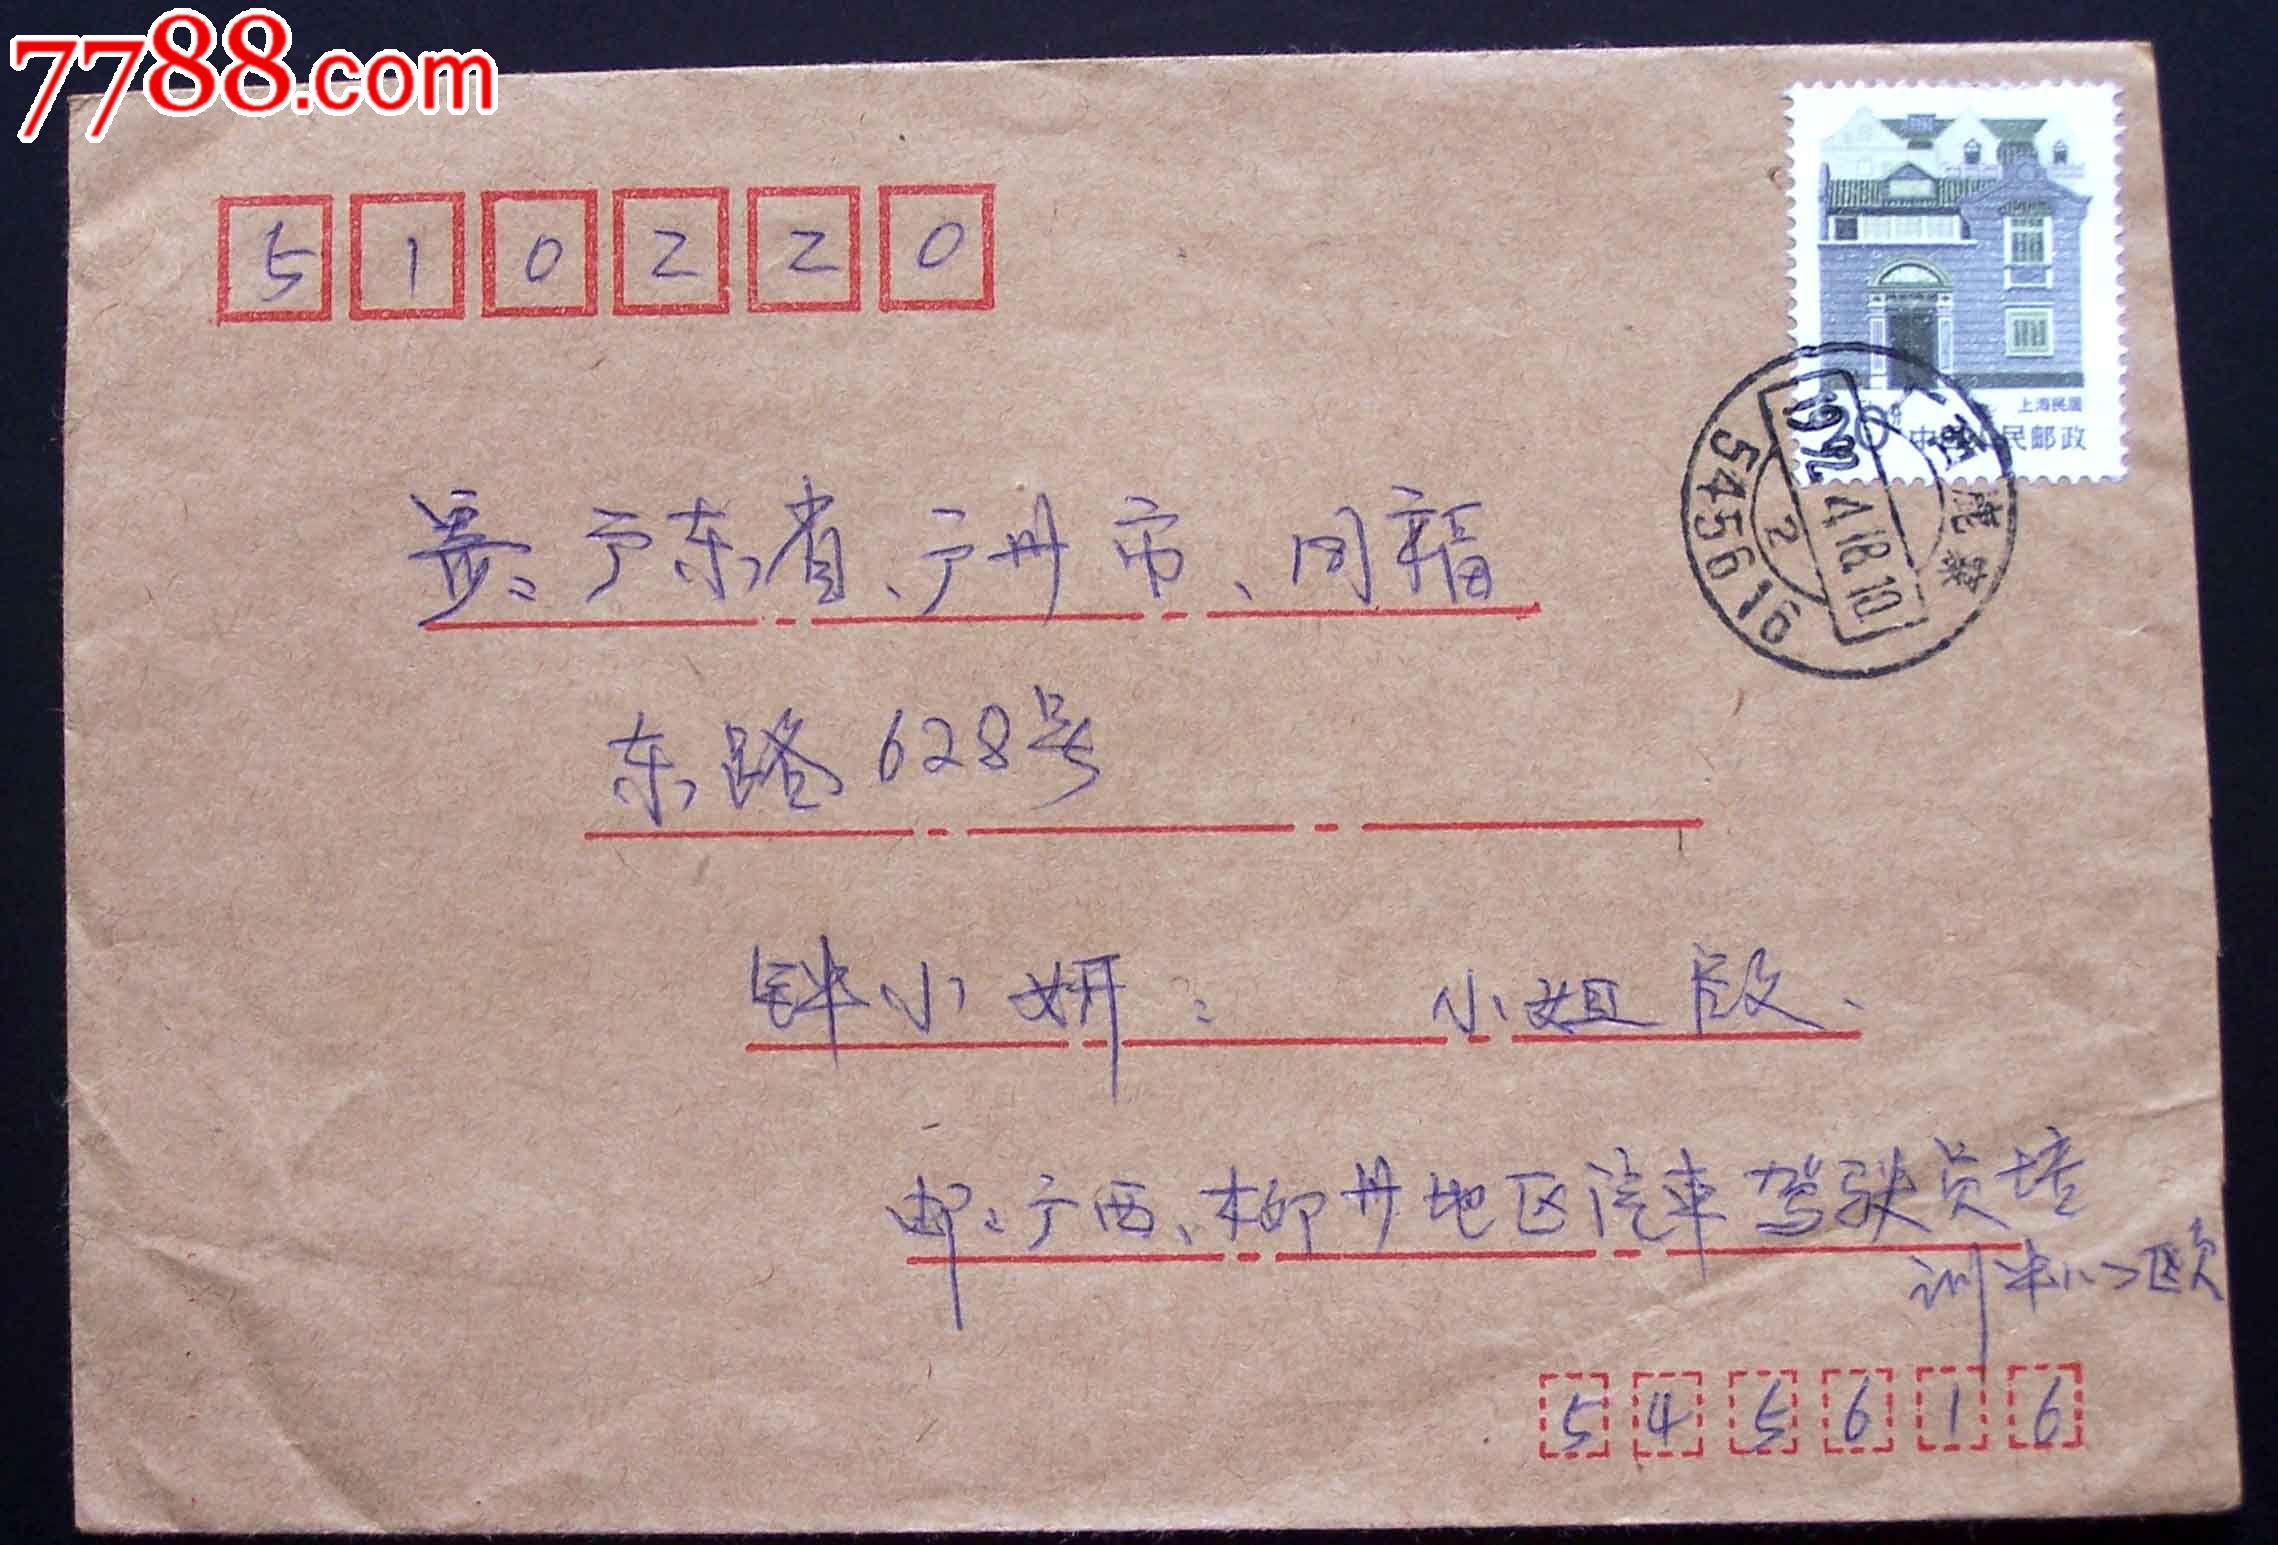 7788.com
510220
上海民居
中国人民邮政
1992.4.18.10
2
545616
寄:广东省、广州市、同福
东路628号
钟小妍: 小姐收.
邮:广西、柳州地区汽车驾驶员培
训中心欧
545616